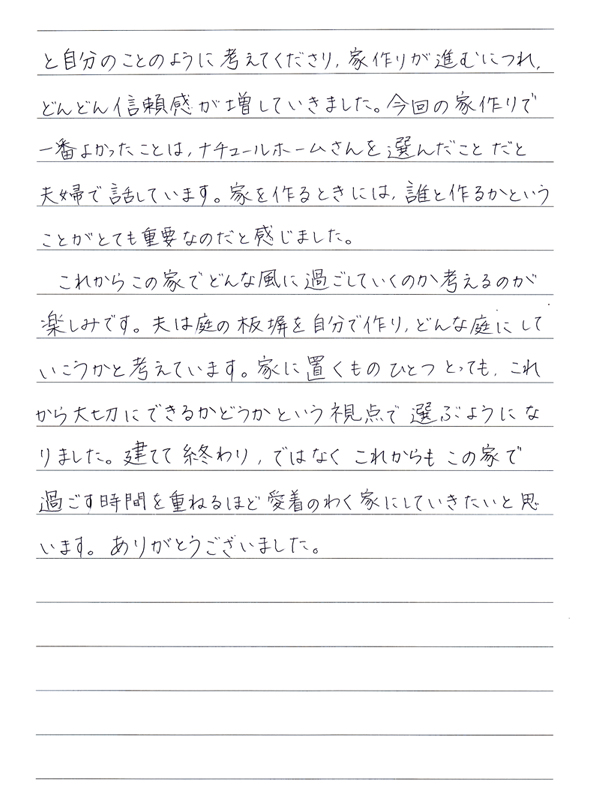 と自分のことのように考えてくださり,家作りが進むにつれ,
どんどん信頼感が増していきました。今回の家作りで
一番よかったことは,ナチュールホームさんを選んだことだと
夫婦で話しています。家を作るときには,誰と作るかという
ことがとても重要なのだと感じました。
これからこの家でどんな風に過ごしていくのか考えるのが
楽しみです。夫は庭の板塀を自分で作り,どんな庭にして
いこうかと考えています。家に置くものひとつとっても,これ
から大切にできるかどうかという視点で選ぶようにな
りました。建てて終わり,ではなくこれからもこの家で
過ごす時間を重ねるほど愛着のわく家にしていきたいと思
います。ありがとうございました。